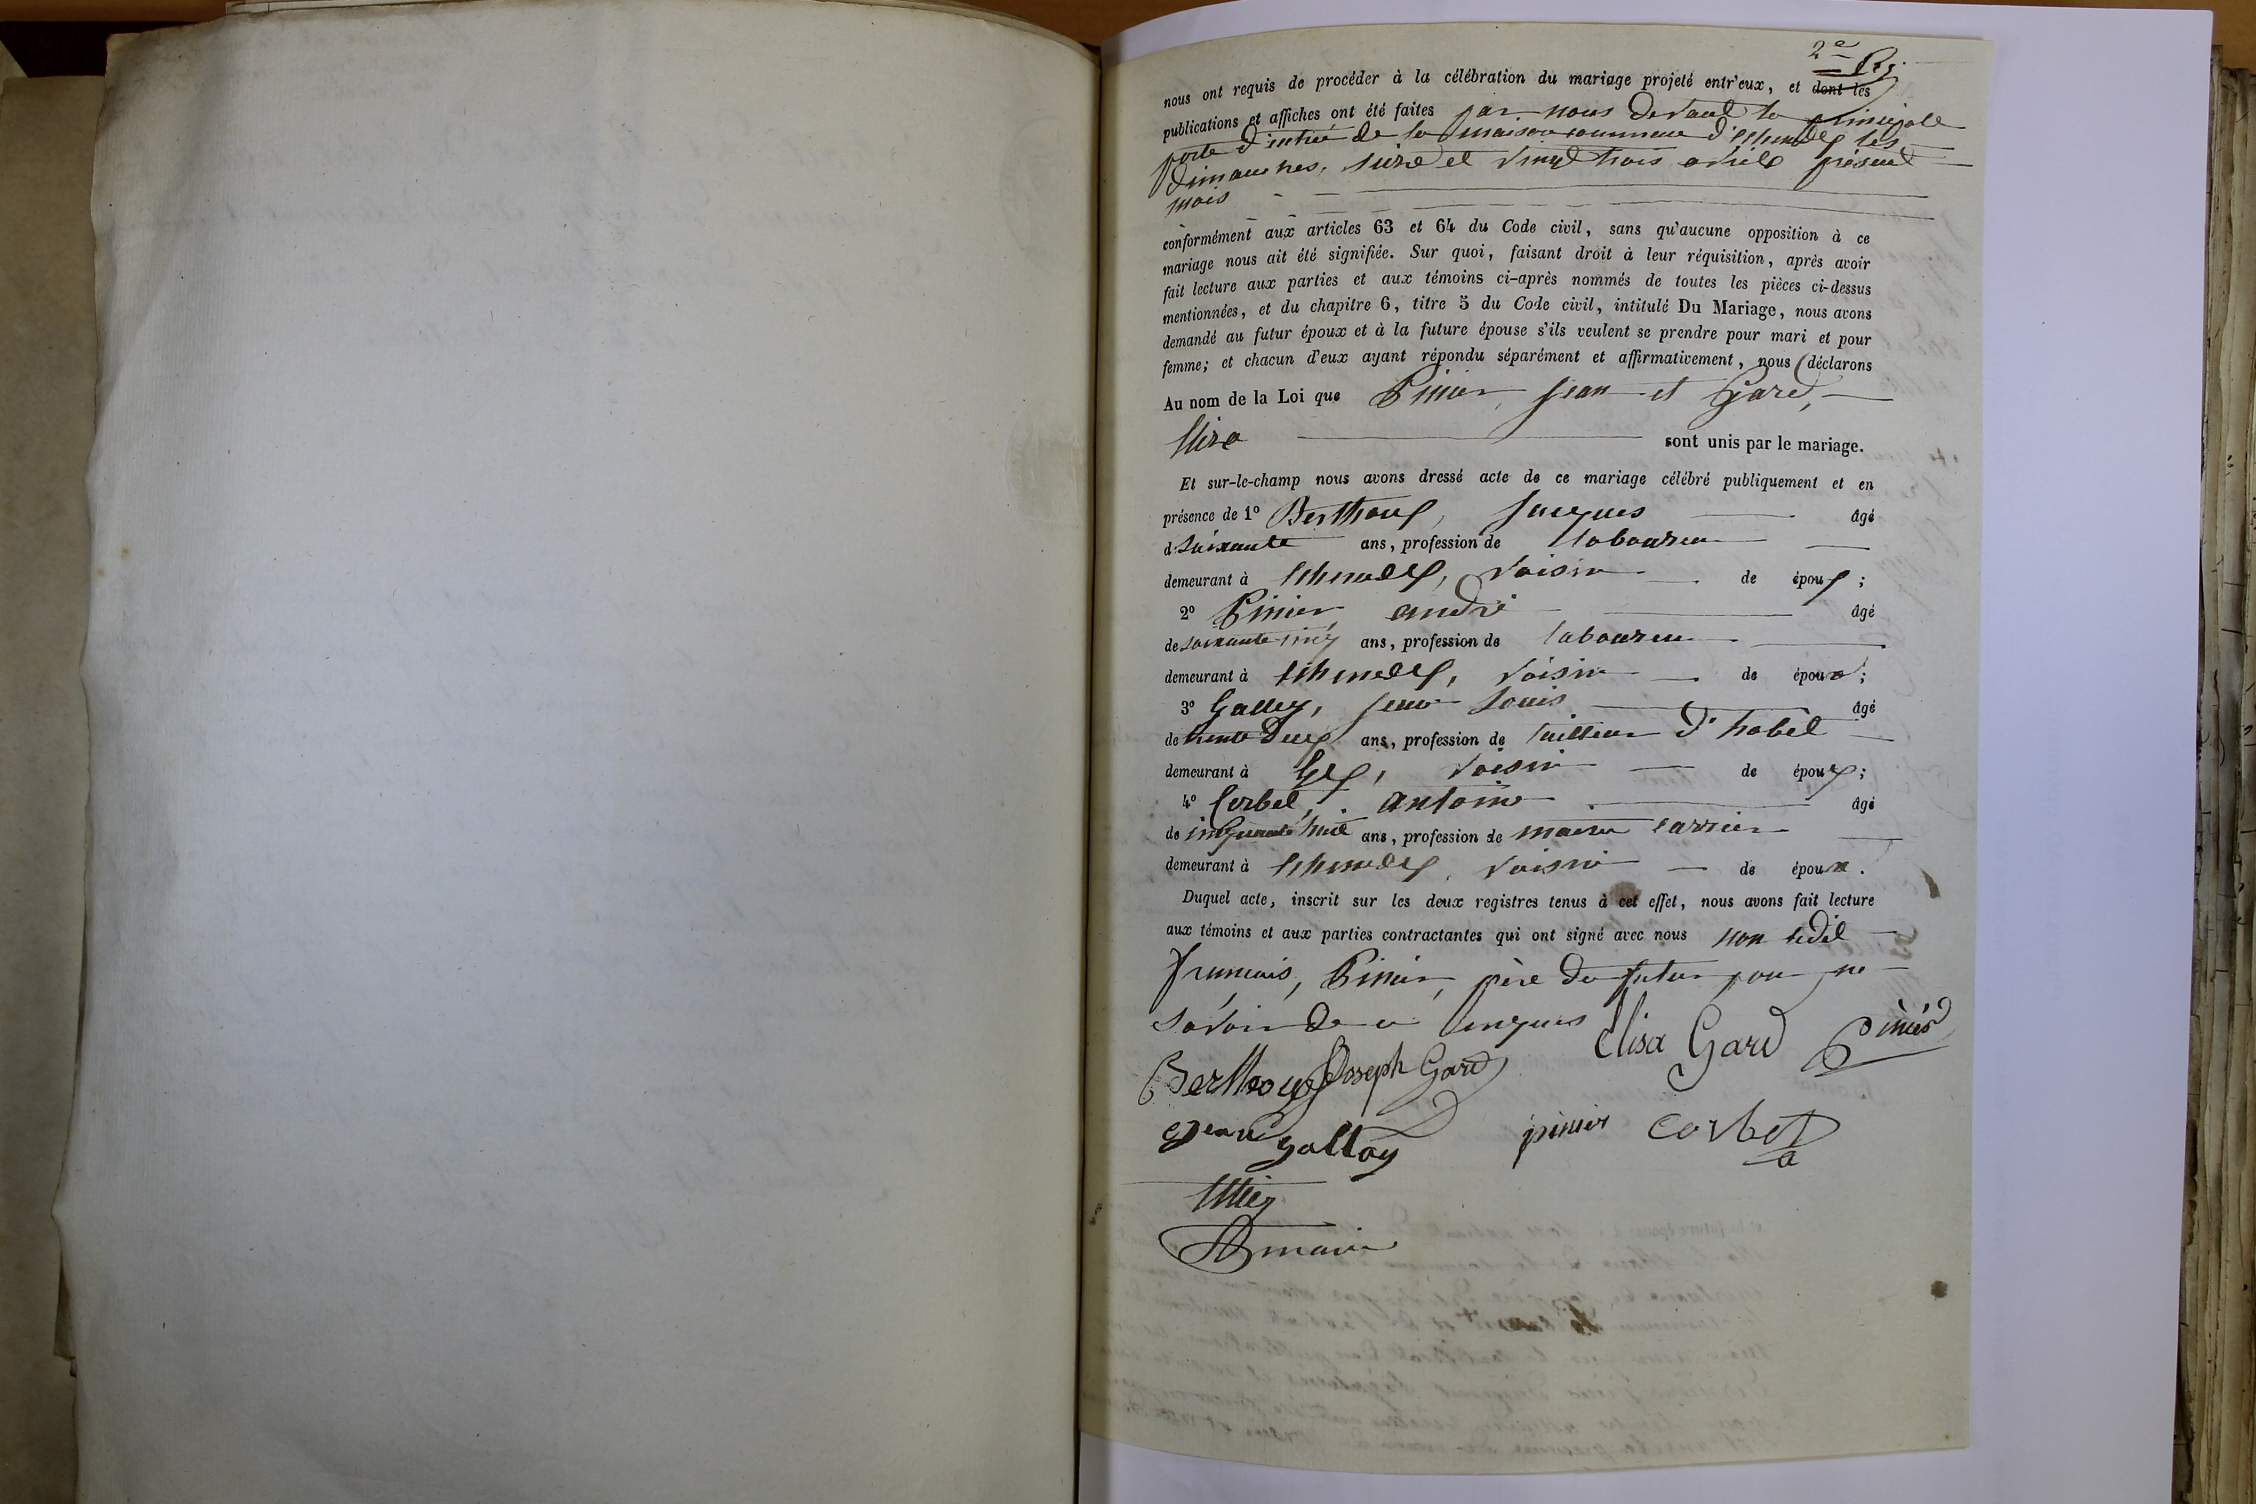 2e
nous ont requis de procéder à la célébration du mariage projeté entr'eux, et dont les
publications et affiches ont été faites par nous devant la principale
porte d'entrée de la maison commune d'Echenevex les
dimanches, seize et vingt trois avril présent
mois
conformément aux articles 63 et 64 du Code civil, sans qu'aucune opposition à ce
mariage nous ait été signifiée. Sur quoi, faisant droit à leur réquisition, après avoir
fait lecture aux parties et aux témoins ci-après nommés de toutes les pièces ci-dessus
mentionnées, et du chapitre 6, titre 5 du Code civil, intitulé Du Mariage, nous avons
demandé au futur époux et à la future épouse s'ils veulent se prendre pour mari et pour
femme; et chacun d'eux ayant répondu séparément et affirmativement, nous déclarons
Au nom de la Loi que Pinier, Jean et Gard,
Elisa sont unis par le mariage.
Et sur-le-champ nous avons dressé acte de ce mariage célébré publiquement et en
présence de 1° Berthoux, Jacques âgé
d soixante ans, profession de laboureur
demeurant à Echenevex, voisin de époux;
2° Pinier, André âgé
de soixante cinq ans, profession de laboureur
demeurant à Echenevex, voisin de époux;
3° Galley, Jean Louis âgé
de trente deux ans, profession de tailleur d'habit
demeurant à Gex, voisin de époux;
4° Corbet, Antoine âgé
de cinquante huit ans, profession de carrier
demeurant à Echenevex, voisin de époux.
Duquel acte, inscrit sur les deux registres tenus à cet effet, nous avons fait lecture
aux témoins et aux parties contractantes qui ont signé avec nous non ledit
francois, Pinier, père du futur pour ne
savoir de ce enquis
Elisa Gard Pinier
Berthoux Joseph Gard
Jean gallay pinier corbet
a
maire